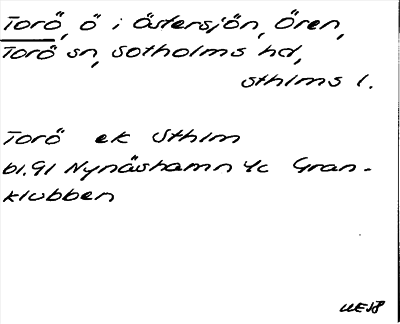 Torö, ö i Östersjön, Ören,
Torö sn, Sotholms hd,
sthlms l.
Torö ek Sthlm
bl. 91 Nynäshamn 4c Gran-
klubben